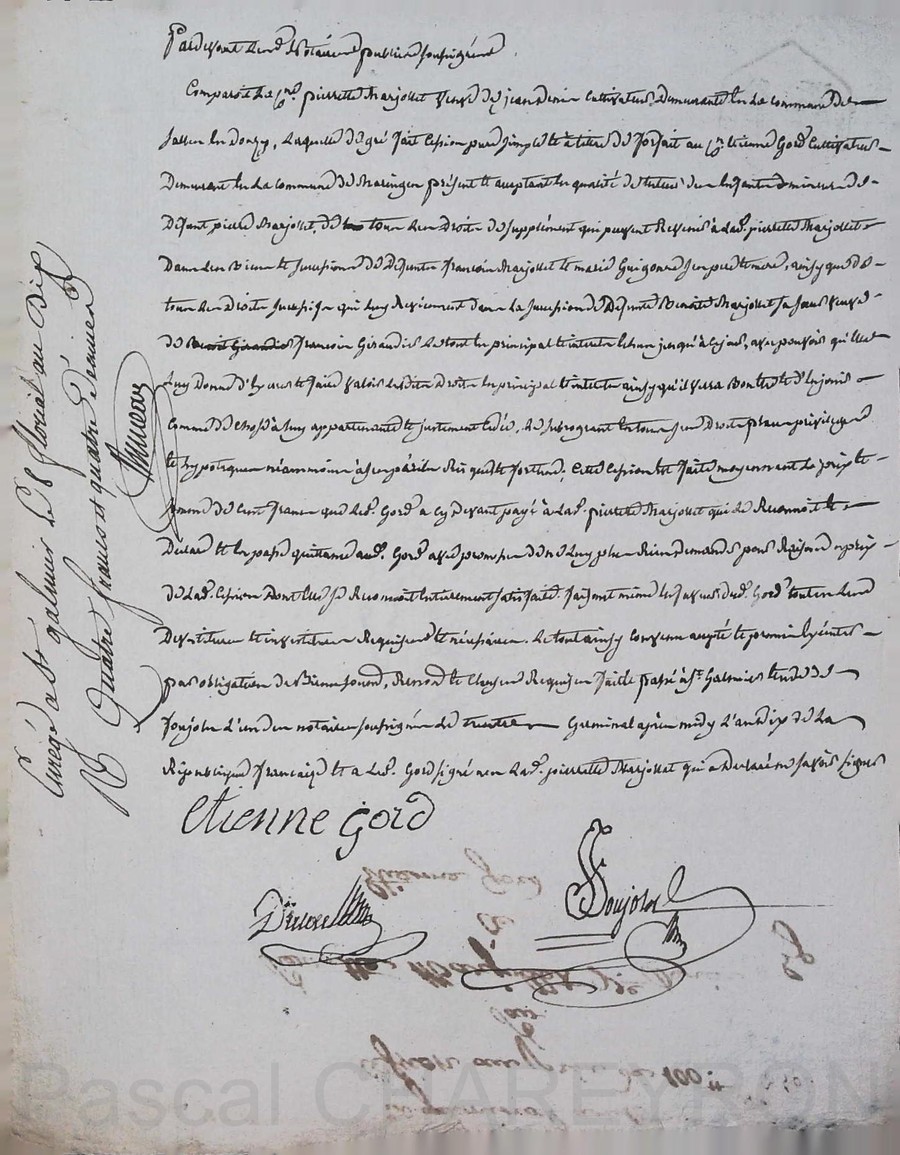 Pardevant Les Notaires publics soussignés
Comparoit La Cne. pierrette Marjollet veuve de jean denis Cultivateur, demeurante en La commune de
Salt en donzy, Laquelle de gré fait Cession pure simple et à titre de forfait au Cn. Etienne Gord Cultivateur
Demeurant en La commune de Maringes présent et acceptant en qualité de tuteur des Enfants mineurs de
Défunt pierre Marjollet, de tous Les Droits de supplément qui peuvent Revenir à Lade. pierrette Marjollet
Dans Les Biens et successions de Défunts francois Marjollet et marie Guigond ses pere et mere, ainsy que de
tous Les Droits successifs qui Luy Reviennent dans La succession de Défunte Benoite Marjollet sa sœur veuve
de Benoit Girardier francois Girardier Le tout en principal et interets Echus jusqu'à ce jour, avec pouvoir qu'elle
Luy Donne d'Exercer et faire valoir Lesdits Droits en principal et interets ainsy qu'il verra Bon être et d'en jouir
Comme de chose à Luy appartenante et justement cédée, Le subrogeant en tous ses Droits privileges
et hypoteques néanmoins à ses périls Risques et fortune, Cette Cession est faite moyennant Le prix et
somme de Cent francs que Led. Gord a cy devant payé à Lade. pierrette Marjollet qui Le Reconnoit et
Déclare et En passe quittance aud. Gord avec promesse de ne Luy plus Rien demander pour Raison du prix
de Lade. Cession Dont Elle se Reconnoit Entierement satisfaite faisant même En faveur dud. Gord toutes Les
Devetitures et investitures Requises et nécessaires. Le tout ainsy convenu accepté et promis Exécuter
par obligation de Biens soumis, Renoncé et Clauses Requises faite passé à St. Galmier Etude de
Soujolen L'un des notaires soussignés Le trente Germinal après midy L'an dix de La
République française et a Led. Gord signé non Lade. pierrette Marjollet qui a Déclaré ne savoir signer
Etienne gord
Enregé à St. galmier le 8 floréal an Dix
R quatre francs et quatre Décimes
100 tt
Pascal CHAREYRON